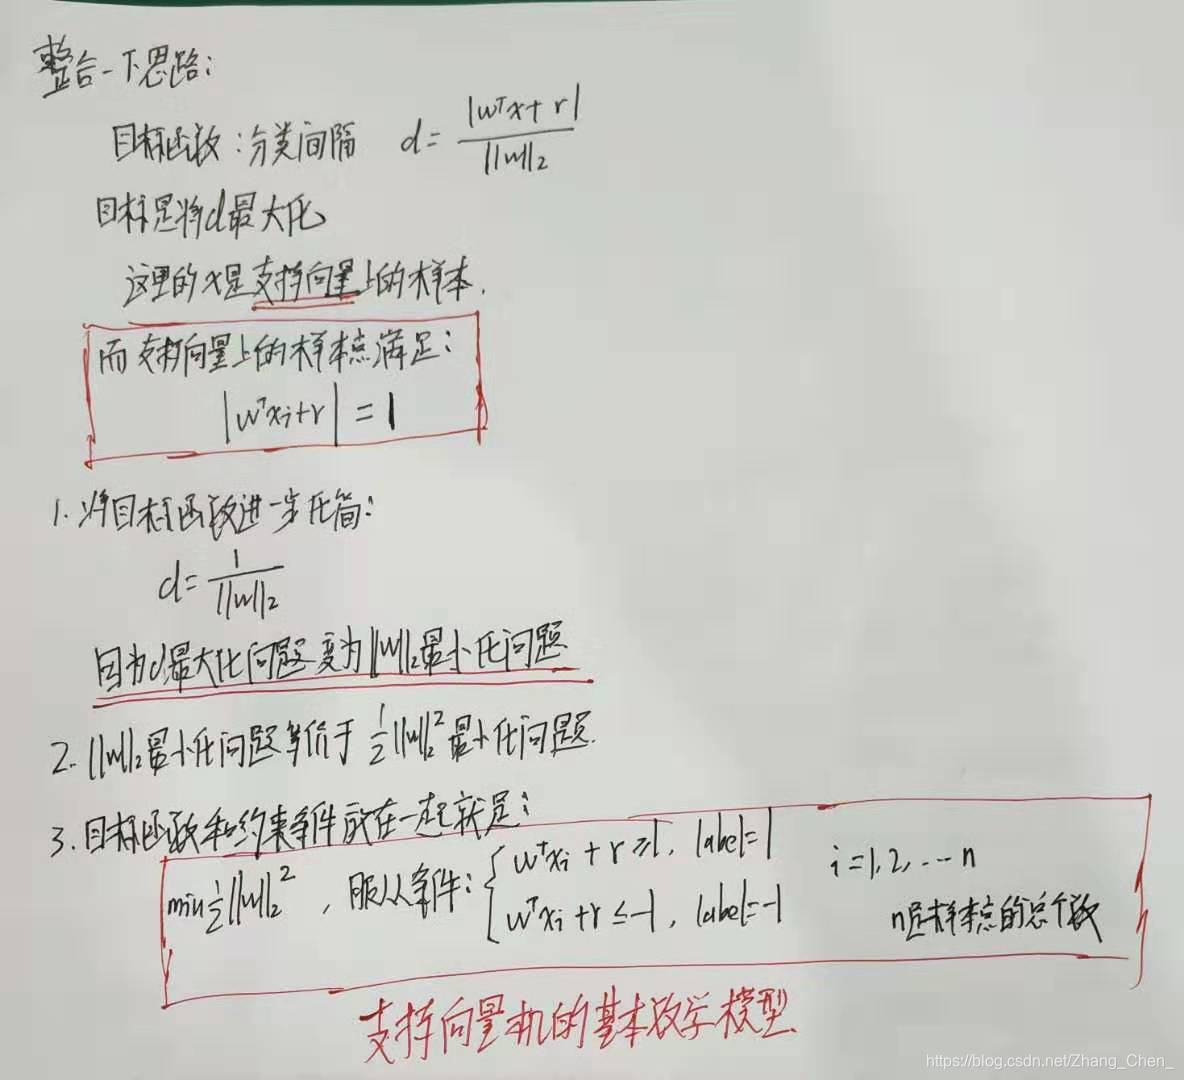 整合一下思路：
目标函数：分类间隔 d = |wᵀx + r| / ||w||₂
目标是将d最大化
这里的x是支持向量上的样本.
而支持向量上的样本点满足：
|wᵀxᵢ+r| = 1
1. 将目标函数进一步化简：
d = 1 / ||w||₂
因为d最大化问题变为||w||₂最小化问题
2. ||w||₂最小化问题等价于 ½||w||₂² 最小化问题.
3. 目标函数和约束条件放在一起就是：
min ½||w||₂² ，服从条件： { wᵀxᵢ + r ≥ 1, label=1 i = 1, 2, ... n
wᵀxᵢ + r ≤ -1, label=-1 n是样本点的总个数
支持向量机的基本数学模型
https://blog.csdn.net/Zhang_Chen_